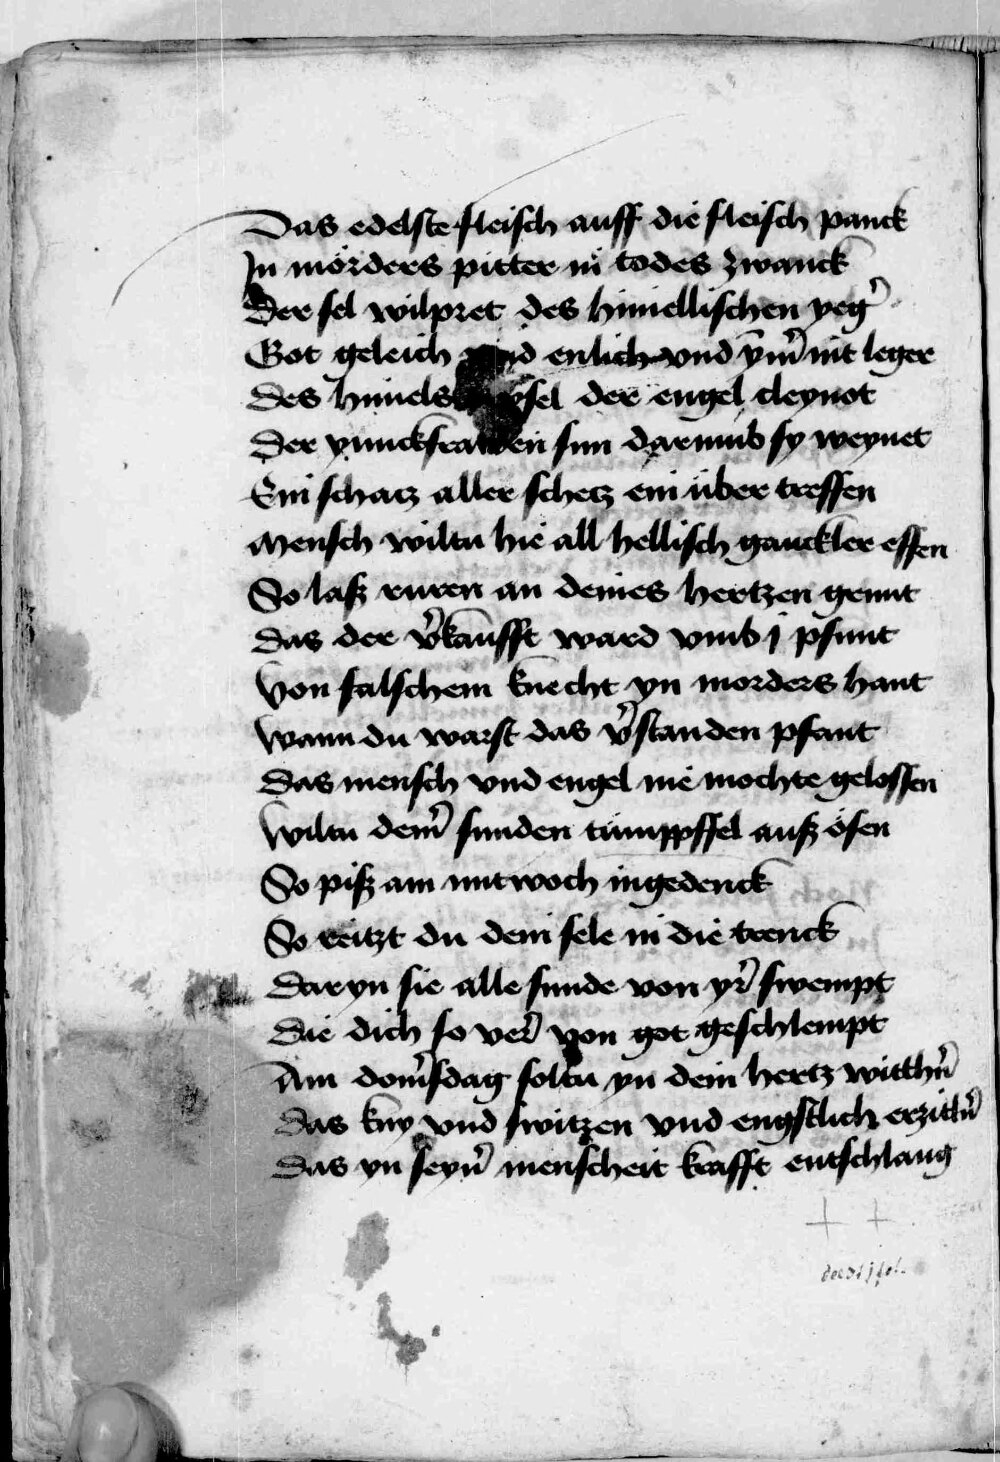 Das edelste fleisch auff die fleisch panck
In mörders pitter in todes zwanck
Der sel wilpret des himellischen yeg᷑
Got geleich vnd enlich vnd ym̃ nit leger
Des himels der engel cleynot
Der yunckfrawen sun darumb sy weynet
Ein schacz aller schecz ein über treffen
Mensch wiltu hie all hellisch gauckler essen
So laß ruren an deines hertzen grunt
Das der v᷑kaufft ward vmb j pfunt
Von falschem knecht yn morders hant
Wann du warst das v᷑standen pfant
Das mensch vnd engel nie mochte gelossen
Wiltu dein᷑ sunden tümppffel auß ösen
So piß am mitwoch ingedenck
So reitzt du dein sele in die trenck
Daryn sie alle sunde von yr᷑ swempt
Die dich so ver᷑ von got geschlempt
Am don᷑sdag soltu yn dein hertz witthn᷑
Das kny vnd switzen vnd engstlich erzittn᷑
Das yn seyn᷑ menscheit krafft entschlang